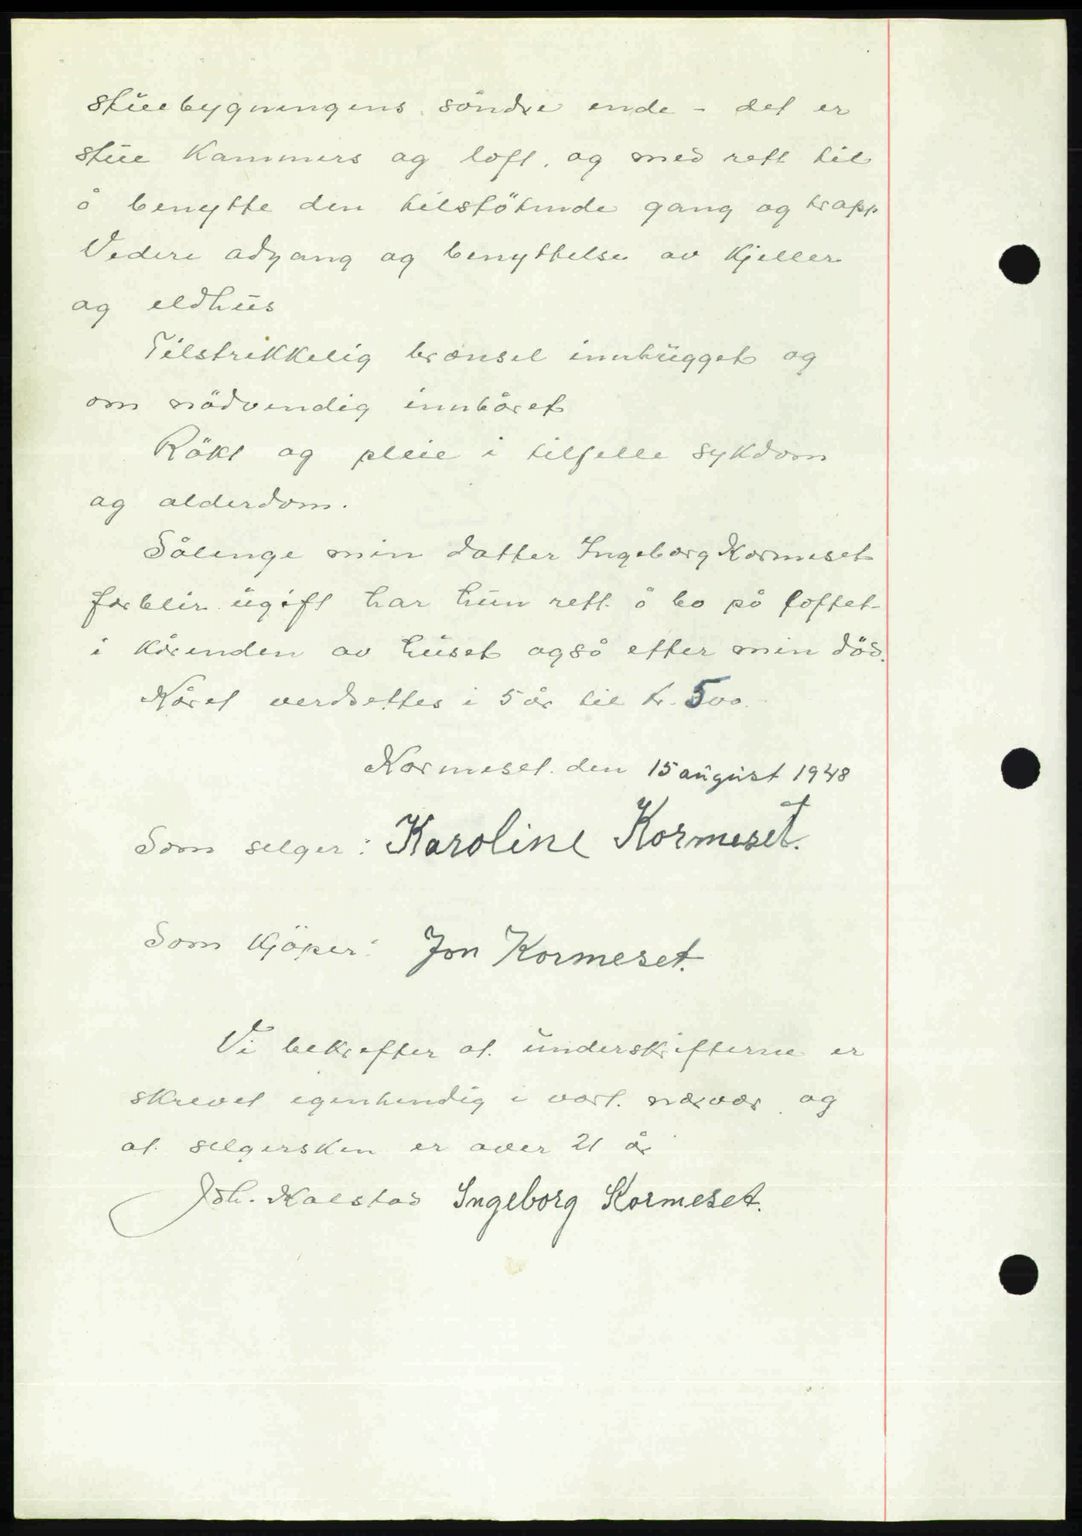 stuebygningens söndre ende - det er
stue Kammers og loft, og med rett til
å benytte den tilstötende gang og trapp
Videre adgang og benyttelse av Kjeller
og eldhus
Tilstrikkelig brensel innhugget og
om nödvendig innbåret
Rökt og pleie i tilfelle sykdom
og alderdom.
Sålenge min datter Ingeborg Kormeset
forblir ugift har hun rett å bo på loftet
i kårenden av huset også etter min död.
Kåret verdsettes i 5 år til kr. 500.
Kormeset den 15 august 1948
Som selger: Karoline Kormeset.
Som Kjöper: Jon Kormeset.
Vi bekrefter at underskrifterne er
skrevet egenhendig i vort nærvær og
at selgersken er over 21 år
Joh. Kalstad Ingeborg Kormeset.